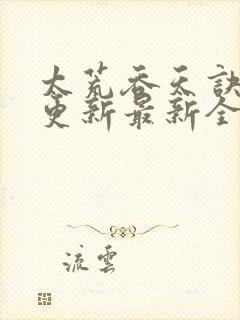 太荒吞天訣
更新最新全
流雲